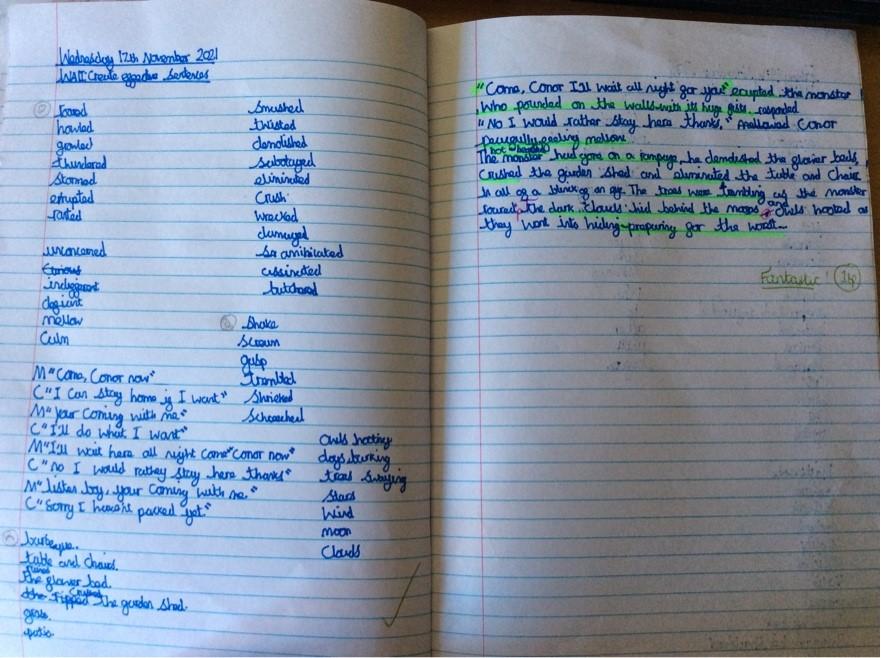 Wednesday 17th November 2021
WALT: Create effective sentences
roared
howled
growled
thundered
stormed
erupted
rasted
unconcerned
Curious
indiggerent
defiant
mellow
Calm
Smushed
twisted
demolished
Sabotaged
eliminated
Crush
Wrecked
damaged
anihilated
assinated
butchered
Shake
Scream
gasp
trembled
Shrieked
Screeched
M "Come, Conor now"
C "I can stay home if I want"
M "your Coming with me"
C "I'll do what I want"
M "I'll wait here all night come" Conor now"
C "no I would rather stay here thanks"
M "listen boy, your Coming with me."
C "Sorry I haven't packed yet."
Owls hooting
dogs barking
trees Swaying
Stars
Wind
moon
Clouds
barbeque.
table and chairs.
the flower bed.
the ripped Crushed the garden shed.
gate.
patio.
"Come, Conor I'll wait all night for you" erupted the monster
Who pounded on the walls with its huge fists responded
"No I would rather stay here thanks," mellowed Conor
peacefully feeling mellow.
The monster had gone on a rampage, he demolished the flower beds,
Crushed the garden shed and eliminated the table and Chairs
in all of a blink of an eye. The trees were trembling as the monster
roared, the dark Clouds hid behind the moon and Owls hooted as
they went into hiding-preparing for the worst...
Fantastic! 1hp